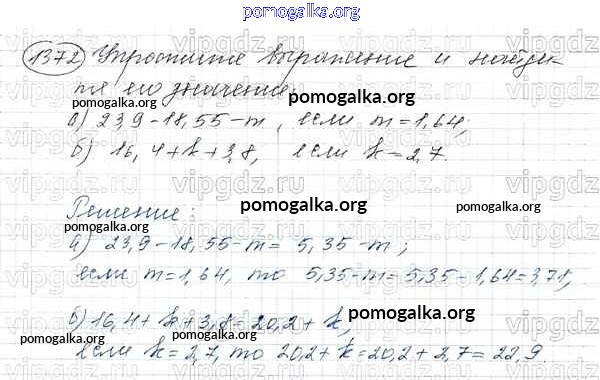 pomogalka.org
1372 Упростите выражение и найди
те его значение:
pomogalka.org
pomogalka.org
а) 23,9-18,55-m, если m=1,64;
б) 16,4+k+3,8, если k=2,7.
pomogalka.org
Решение:
pomogalka.org
pomogalka.org
а) 23,9-18,55-m=5,35-m;
если m=1,64, то 5,35-m=5,35-1,64=3,71;
pomogalka.org
б) 16,4+k+3,8=20,2+k,
pomogalka.org
если k=2,7, то 20,2+k=20,2+2,7=22,9.